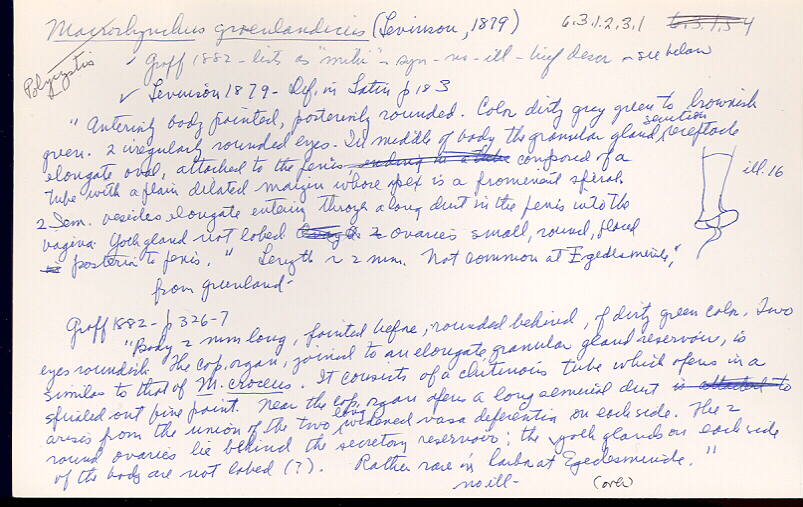 Macrorhynchus groenlandicus (Levinson, 1879) 6.3.1.2.3.1 6.3.1.5 4
Polycystis
✓ Graff 1882 - lists as "mihi" - syn - no - ill - brief descr - see below
✓ Levinson 1879 - Def. in Latin p 183
"Anteriorly body pointed, posteriorly rounded. Color dirty grey green to brownish
green. 2 irregularly rounded eyes. In middle of body the granular gland secretion receptacle
elongate oval, attached to the penis ending in a tube composed of a
tube with a plain dilated margin whose apex is a prominent spiral.
ill. 16
2 Sem. vesicles elongate entering through a long duct in the penis into the
vagina. Yolk gland not lobed 2 ovaries small, round, placed
posterior to penis." Length ~ 2 mm. Not common at Egedesminde,"
from Greenland -
Graff 1882 - p 326-7
"Body 2 mm long, pointed before, rounded behind, of dirty green color. Two
eyes roundish. The cop. organ, joined to an elongate granular gland reservoir, is
similar to that of M. croceus. It consists of a chitinous tube which opens in a
spiraled out fine point. Near the cop. organ opens a long seminal duct is attached to
arises from the union of the two long widened vasa deferentia on each side. The 2
round ovaries lie behind the secretory reservoir; the yolk glands on each side
of the body are not lobed (?). Rather rare in harbor at Egedesminde."
no ill - (over)